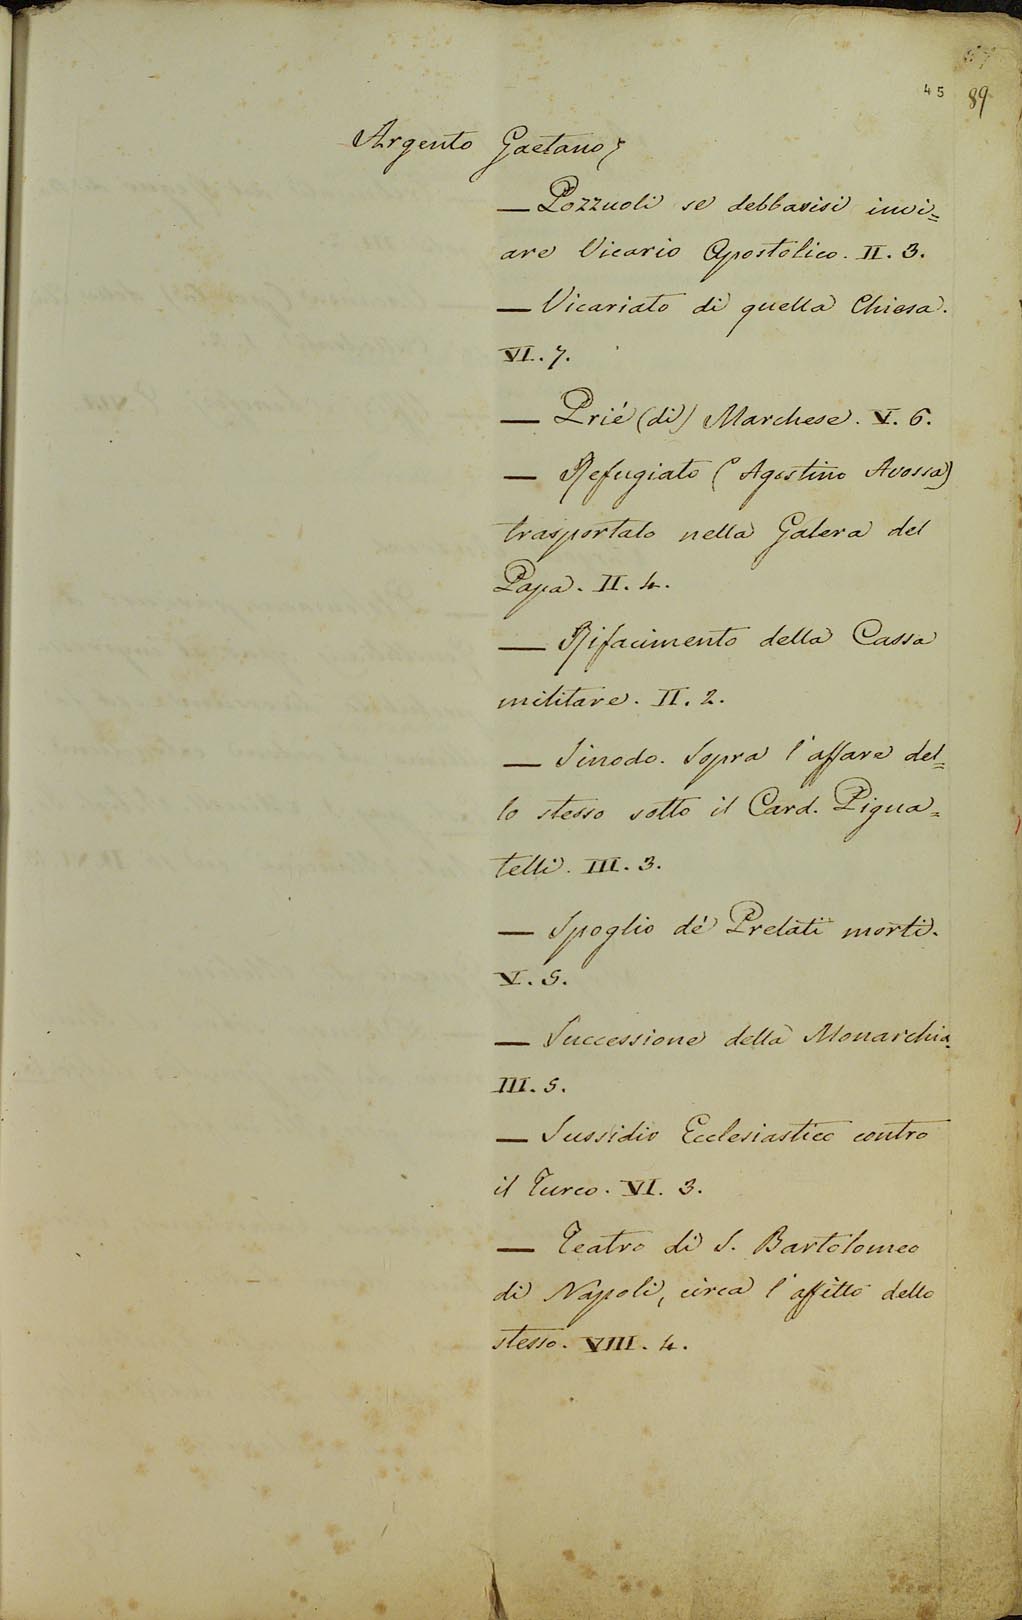 45 89
Argento Gaetano
— Pozzuoli se debbavisi invi=
are Vicario Apostolico. II. 3.
— Vicariato di quella Chiesa.
VI. 7.
— Prié (di) Marchese. V. 6.
— Refugiato (Agostino Avossa)
trasportato nella Galera del
Papa. II. 4.
— Rifacimento della Cassa
militare. II. 2.
— Sinodo. Sopra l'affare del=
lo stesso sotto il Card. Pigna=
telli. III. 3.
— Spoglio dé Prelati morti.
V. 5.
— Successione della Monarchia.
III. 5.
— Sussidio Ecclesiastico contro
il Turco. VI. 3.
— Teatro di S. Bartolomeo
di Napoli, circa l'affitto dello
stesso. VIII. 4.